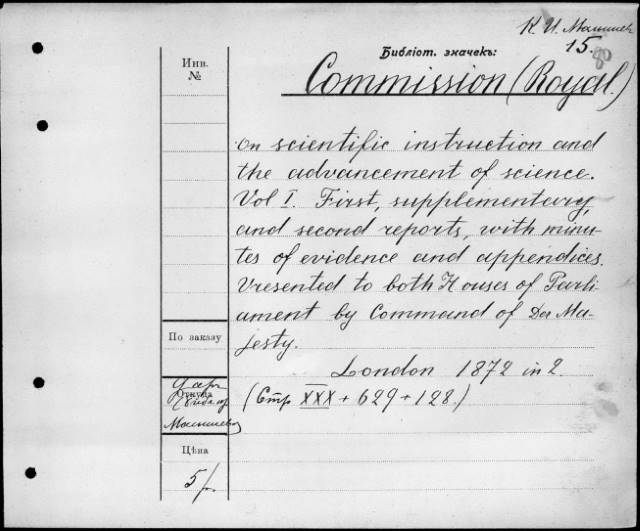 К. И.
15.
80
Библіот. значекъ:
Инв.
№
Commission (Royal.)
on scientific instruction and
the advancement of science.
Vol I. First, supplementary,
and second reports, with minu-
tes of evidence and appendices.
Presented to both Houses of Parli-
ament by Command of Her Ma-
jesty.
По заказу
London 1872 in 2.
Даръ
Откуда
(Стр XXX + 629 + 128.)
Цѣна
5/-